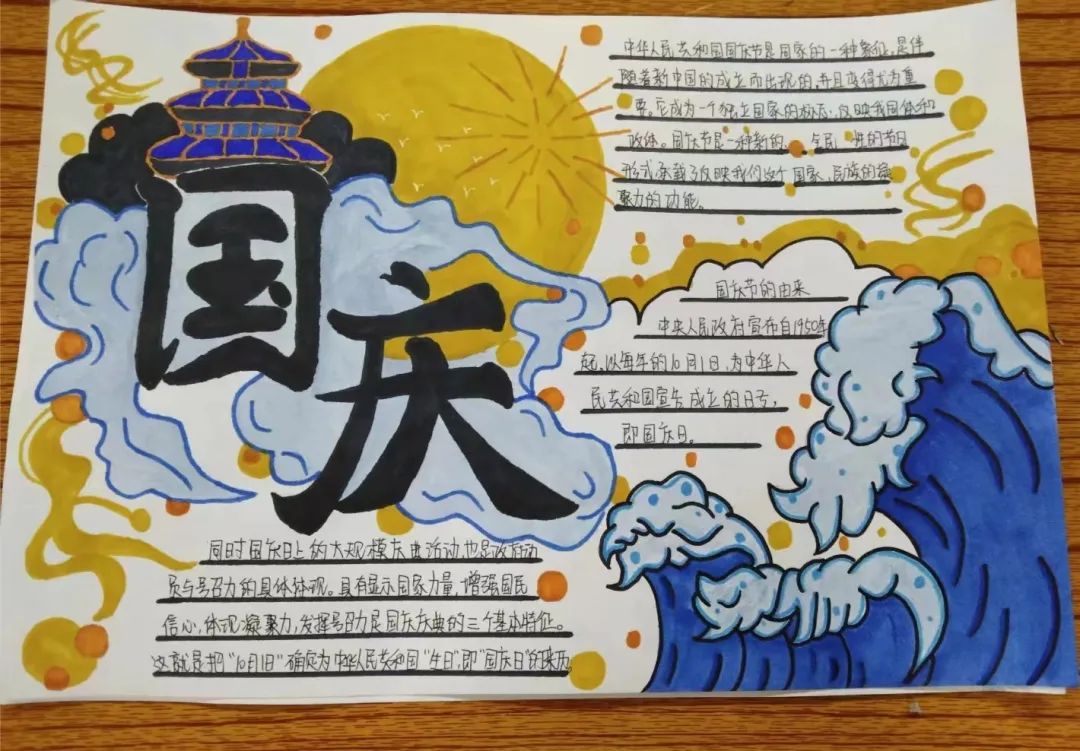 国庆
中华人民共和国国庆节是国家的一种象征,是伴
随着新中国的成立而出现的,并且变得尤为重
要。它成为一个独立国家的标志,反映我国体和
政体。国庆节是一种新的 全民 性的节日
形式承载了反映我们这个国家、民族的凝
聚力的功能。
国庆节的由来
中央人民政府宣布自1950年
起,以每年的10月1日,为中华人
民共和国宣告成立的日子,
即国庆日。
同时国庆日上的大规模庆典活动也是政府动
员与号召力的具体体现。具有显示国家力量,增强国民
信心,体现凝聚力,发挥号召力是国庆庆典的三个基本特征。
这就是把“10月1日”确定为中华人民共和国“生日”,即“国庆日”的来历。